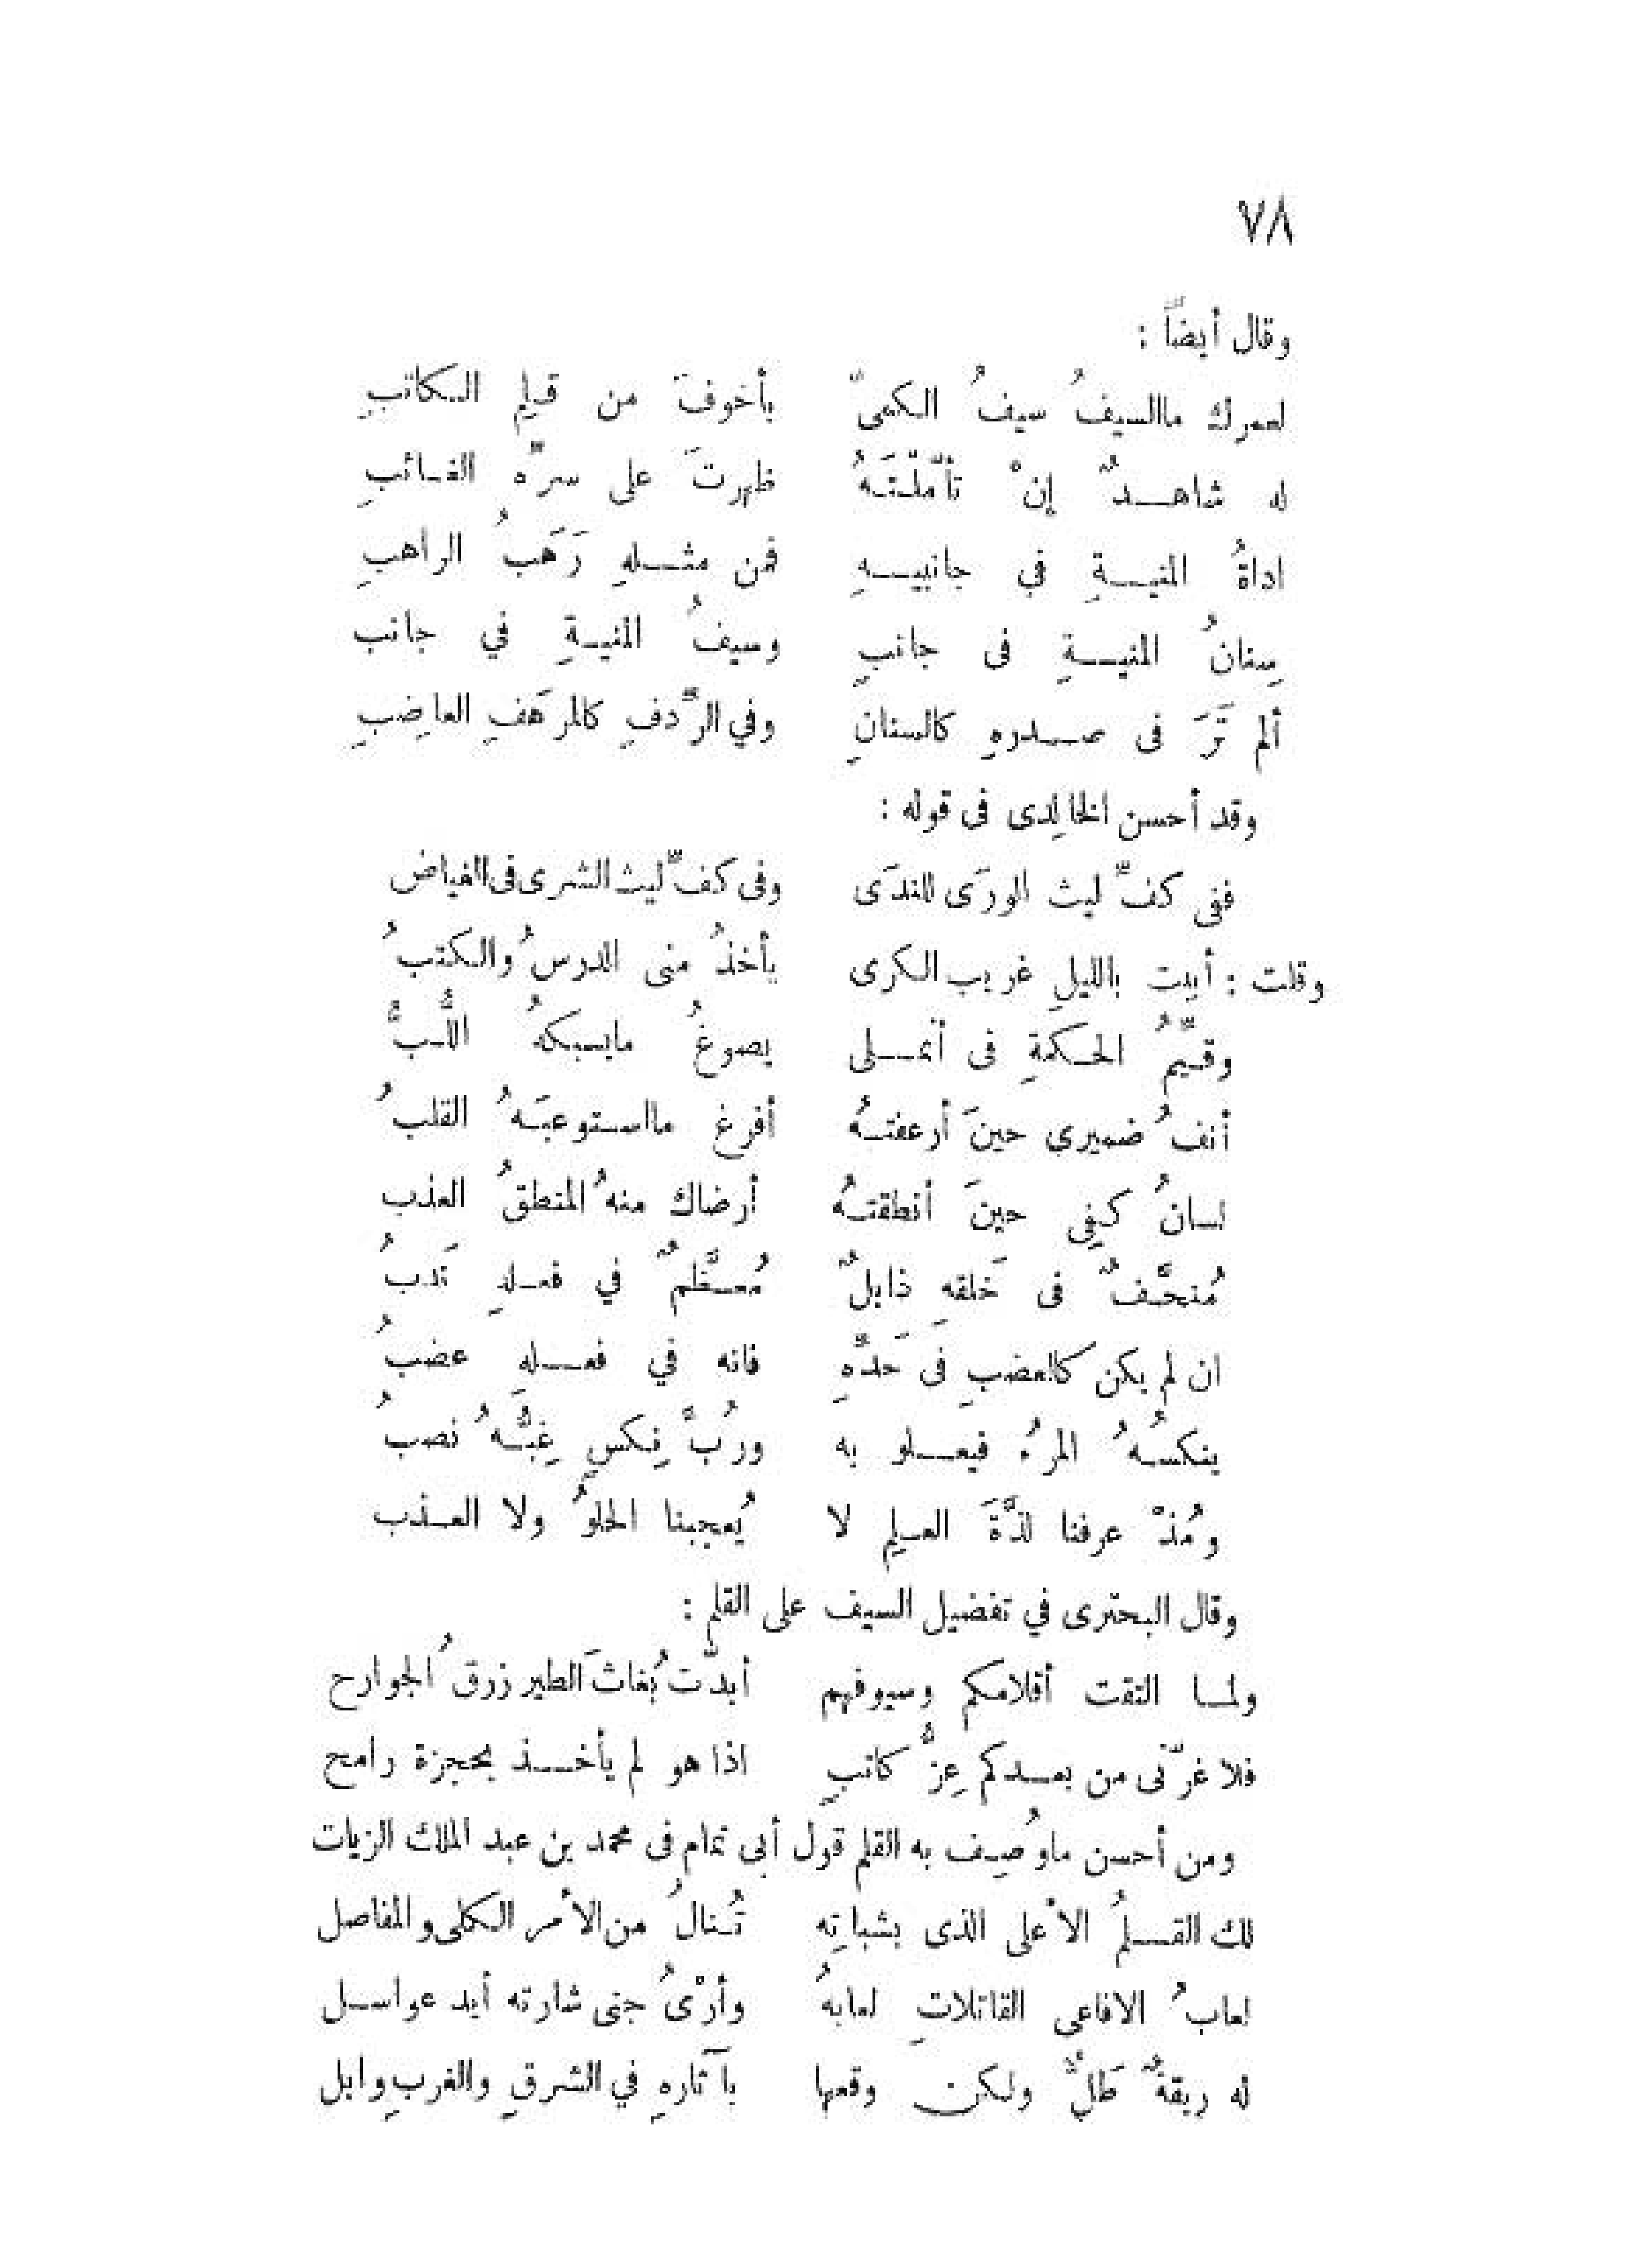 ٧٨
وقال أيضاً :
لعمرك ماالسيفُ سيفُ الكمىّ بأخوفَ من قلمِ الكاتبِ
له شاهدٌ إنْ تأمّلْتَهُ ظهرتَ على سرّه الغائبِ
اداةُ المنيةِ في جانبيهِ فمن مثلهِ رَهَبُ الراهبِ
سِنانُ المنيةِ فى جانبٍ وسيفُ المنيةِ في جانب
ألم تَرَ فى صدرهِ كالسنانِ وفي الرّدفِ كالمرهَفِ العاضِبِ
وقد أحسن الخالِدى فى قوله :
ففى كفّ ليث الورَى للندَى وفى كفّ ليث الشرى فى الغياض
وقلت : أبيت بالليلِ غريب الكرى يأخذُ منى الدرسُ والكتبُ
وقيّمُ الحكمةِ فى أنملى يصوغُ مايسبكهُ اللُّبُّ
أنفُ ضميرى حينَ أرعفتهُ أفرغ مااستوعبَهُ القلبُ
لسانُ كفِى حينَ أنطقتهُ أرضاك منهُ المنطقُ العذب
مُنحَّفٌ فى خَلقهِ ذابلٌ مُعظَّمٌ في فعلهِ نَدبُ
ان لم يكن كالعضبِ فى حَدّهِ فانه في فعله عضبُ
ينكسُهُ المرُء فيعلو به ورُبَّ نِكسٍ غِبُّهُ نصبُ
ومُذْ عرفنا لذَّةَ العلمِ لا يُعجبنا الحلوُ ولا العذب
وقال البحترى في تفضيل السيف على القلم :
ولما التقت أقلامكم وسيوفهم أبدّت بُغاثَ الطير زرقُ الجوارح
فلا غرّنى من بعدكم عِزُّ كاتبٍ اذا هو لم يأخذ بحجزة رامح
ومن أحسن ماوُصِف به القلم قول أبى تمام فى محمد بن عبد الملك الزيات
لك القلمُ الأعلى الذى بشباتِه تُنالُ من الأمر الكلى والمفاصل
لعابُ الافاعى القاتلاتِ لعابهُ وأرْىُ جنى شارته أيد عواسل
له ريقةٌ طَلٌّ ولكن وقعها بآثارهِ في الشرقِ والغربِ وابل